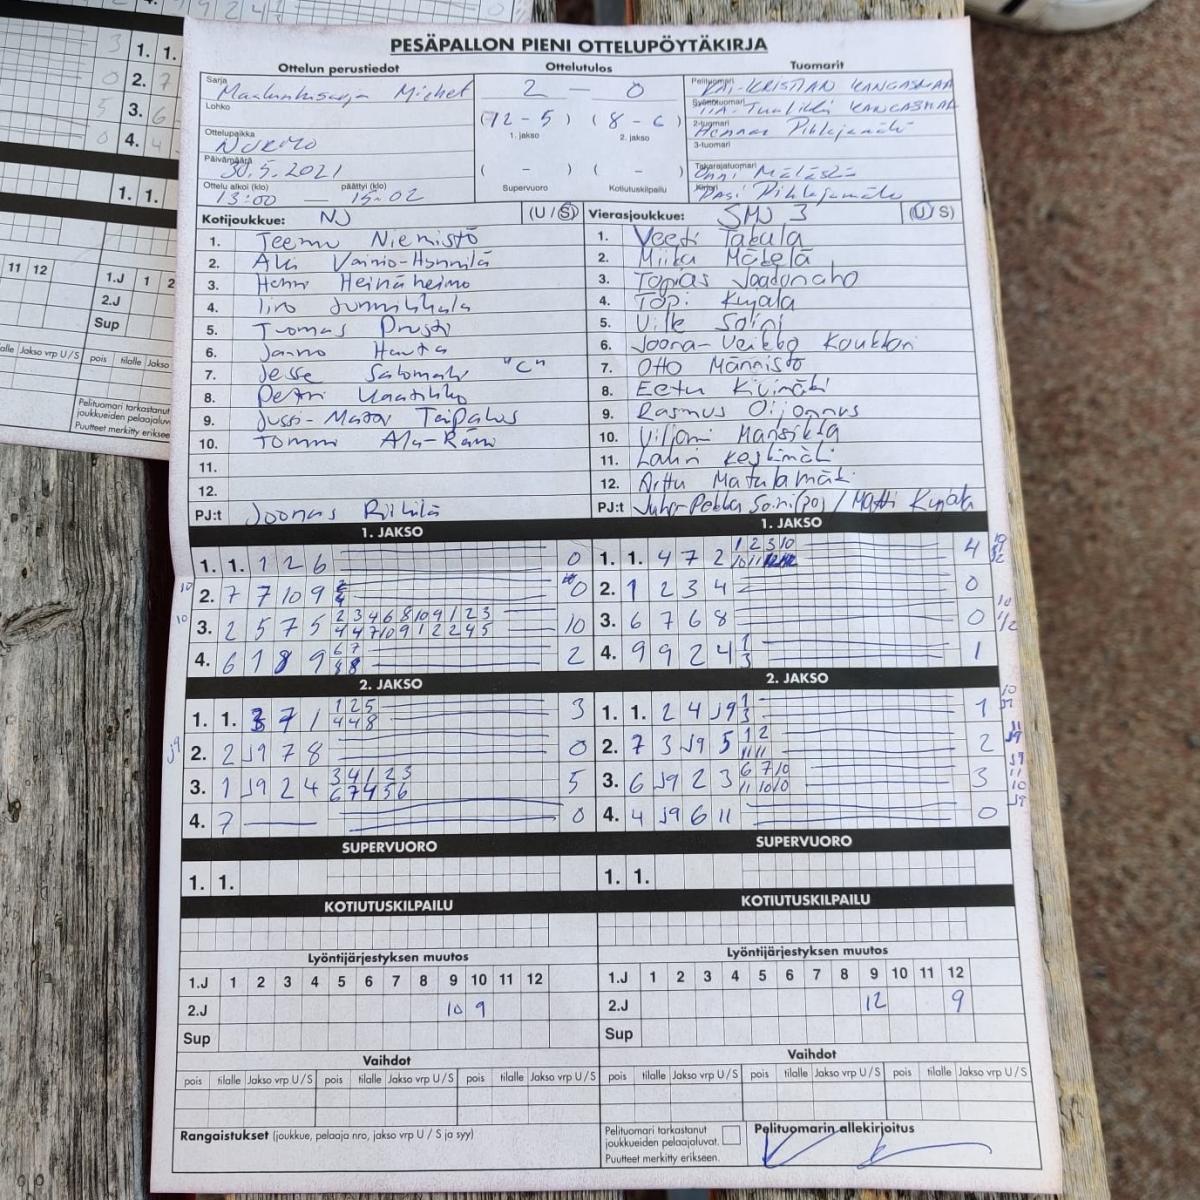 PESÄPALLON PIENI OTTELUPÖYTÄKIRJA
Ottelun perustiedot
Ottelutulos
Tuomarit
Sarja
Maakuntasarja Miehet
Lohko
Ottelupaikka
NURMO
Päivämäärä
30.5.2021
Ottelu alkoi (klo) päättyi (klo)
13:00 — 15.02
2 — 0
(12 - 5) (8 - 6)
1. jakso 2. jakso
( - ) ( - )
Supervuoro Kotiutuskilpailu
Pelituomari
KAI-KRISTIAN KANGASMAA
Syöttötuomari
IIA-Tuulikki KANGASMAA
2-tuomari
Hannes Pihlajamäki
3-tuomari
Takarajatuomari
Onni
Kirjuri
Pasi Pihlajamäki
Kotijoukkue: NJ (U / S)
1. Teemu Niemistö
2. Aki Vainio-Hynnilä
3. Henri Heinäheimo
4. Iiro
5. Tuomas
6. Jarmo Hauta
7. Jesse Salomaki "C"
8. Petri
9. Jussi-Matti Taipalus
10. Tommi Ala-Rämi
11.
12.
PJ:t Joonas Riihilä
Vierasjoukkue: SMJ 3 (U / S)
1. Veeti Takala
2. Miika Mäkelä
3. Topias
4. Topi Kujala
5. Ville Soini
6. Joona-Veikko Koukkari
7. Otto Männistö
8. Eetu Kivimäki
9. Rasmus Oijennus
10. Viljami Mansikka
11. Lauri Keskimäki
12. Arttu Matulamäki
PJ:t Juha-Pekka Soini(po) / Matti Kujala
1. JAKSO
1. 1. 1 2 6 0
2. 7 7 10 9 0
3. 2 5 7 5 2 3 4 6 8 10 9 1 2 3 10
4 4 7 10 9 1 2 2 4 5
4. 6 1 8 9 6 7 2
8 8
1. JAKSO
1. 1. 4 7 2 1 2 3 10 4
2. 1 2 3 4 0
3. 6 7 6 8 0
4. 9 9 2 4 1 1
3
2. JAKSO
1. 1. 3 7 1 1 2 5 3
4 4 8
2. 2 J9 7 8 0
3. 1 J9 2 4 3 4 1 2 3 5
6 7 4 5 6
4. 7 — 0
2. JAKSO
1. 1. 2 4 J9 1 1
3
2. 7 3 J9 5 1 2 2
11 11
3. 6 J9 2 3 6 7 10 3
11 10 10
4. 4 J9 6 11 0
SUPERVUORO
1. 1.
SUPERVUORO
1. 1.
KOTIUTUSKILPAILU
KOTIUTUSKILPAILU
Lyöntijärjestyksen muutos
1.J 1 2 3 4 5 6 7 8 9 10 11 12
2.J 10 9
Sup
Lyöntijärjestyksen muutos
1.J 1 2 3 4 5 6 7 8 9 10 11 12
2.J 12 9
Sup
Vaihdot
pois tilalle Jakso vrp U / S pois tilalle Jakso vrp U / S pois tilalle Jakso vrp U / S
Vaihdot
pois tilalle Jakso vrp U / S pois tilalle Jakso vrp U / S pois tilalle Jakso vrp U / S
Rangaistukset (joukkue, pelaaja nro, jakso vrp U / S ja syy)
Pelituomari tarkastanut
joukkueiden pelaajaluvat.
Puutteet merkitty erikseen.
Pelituomarin allekirjoitus